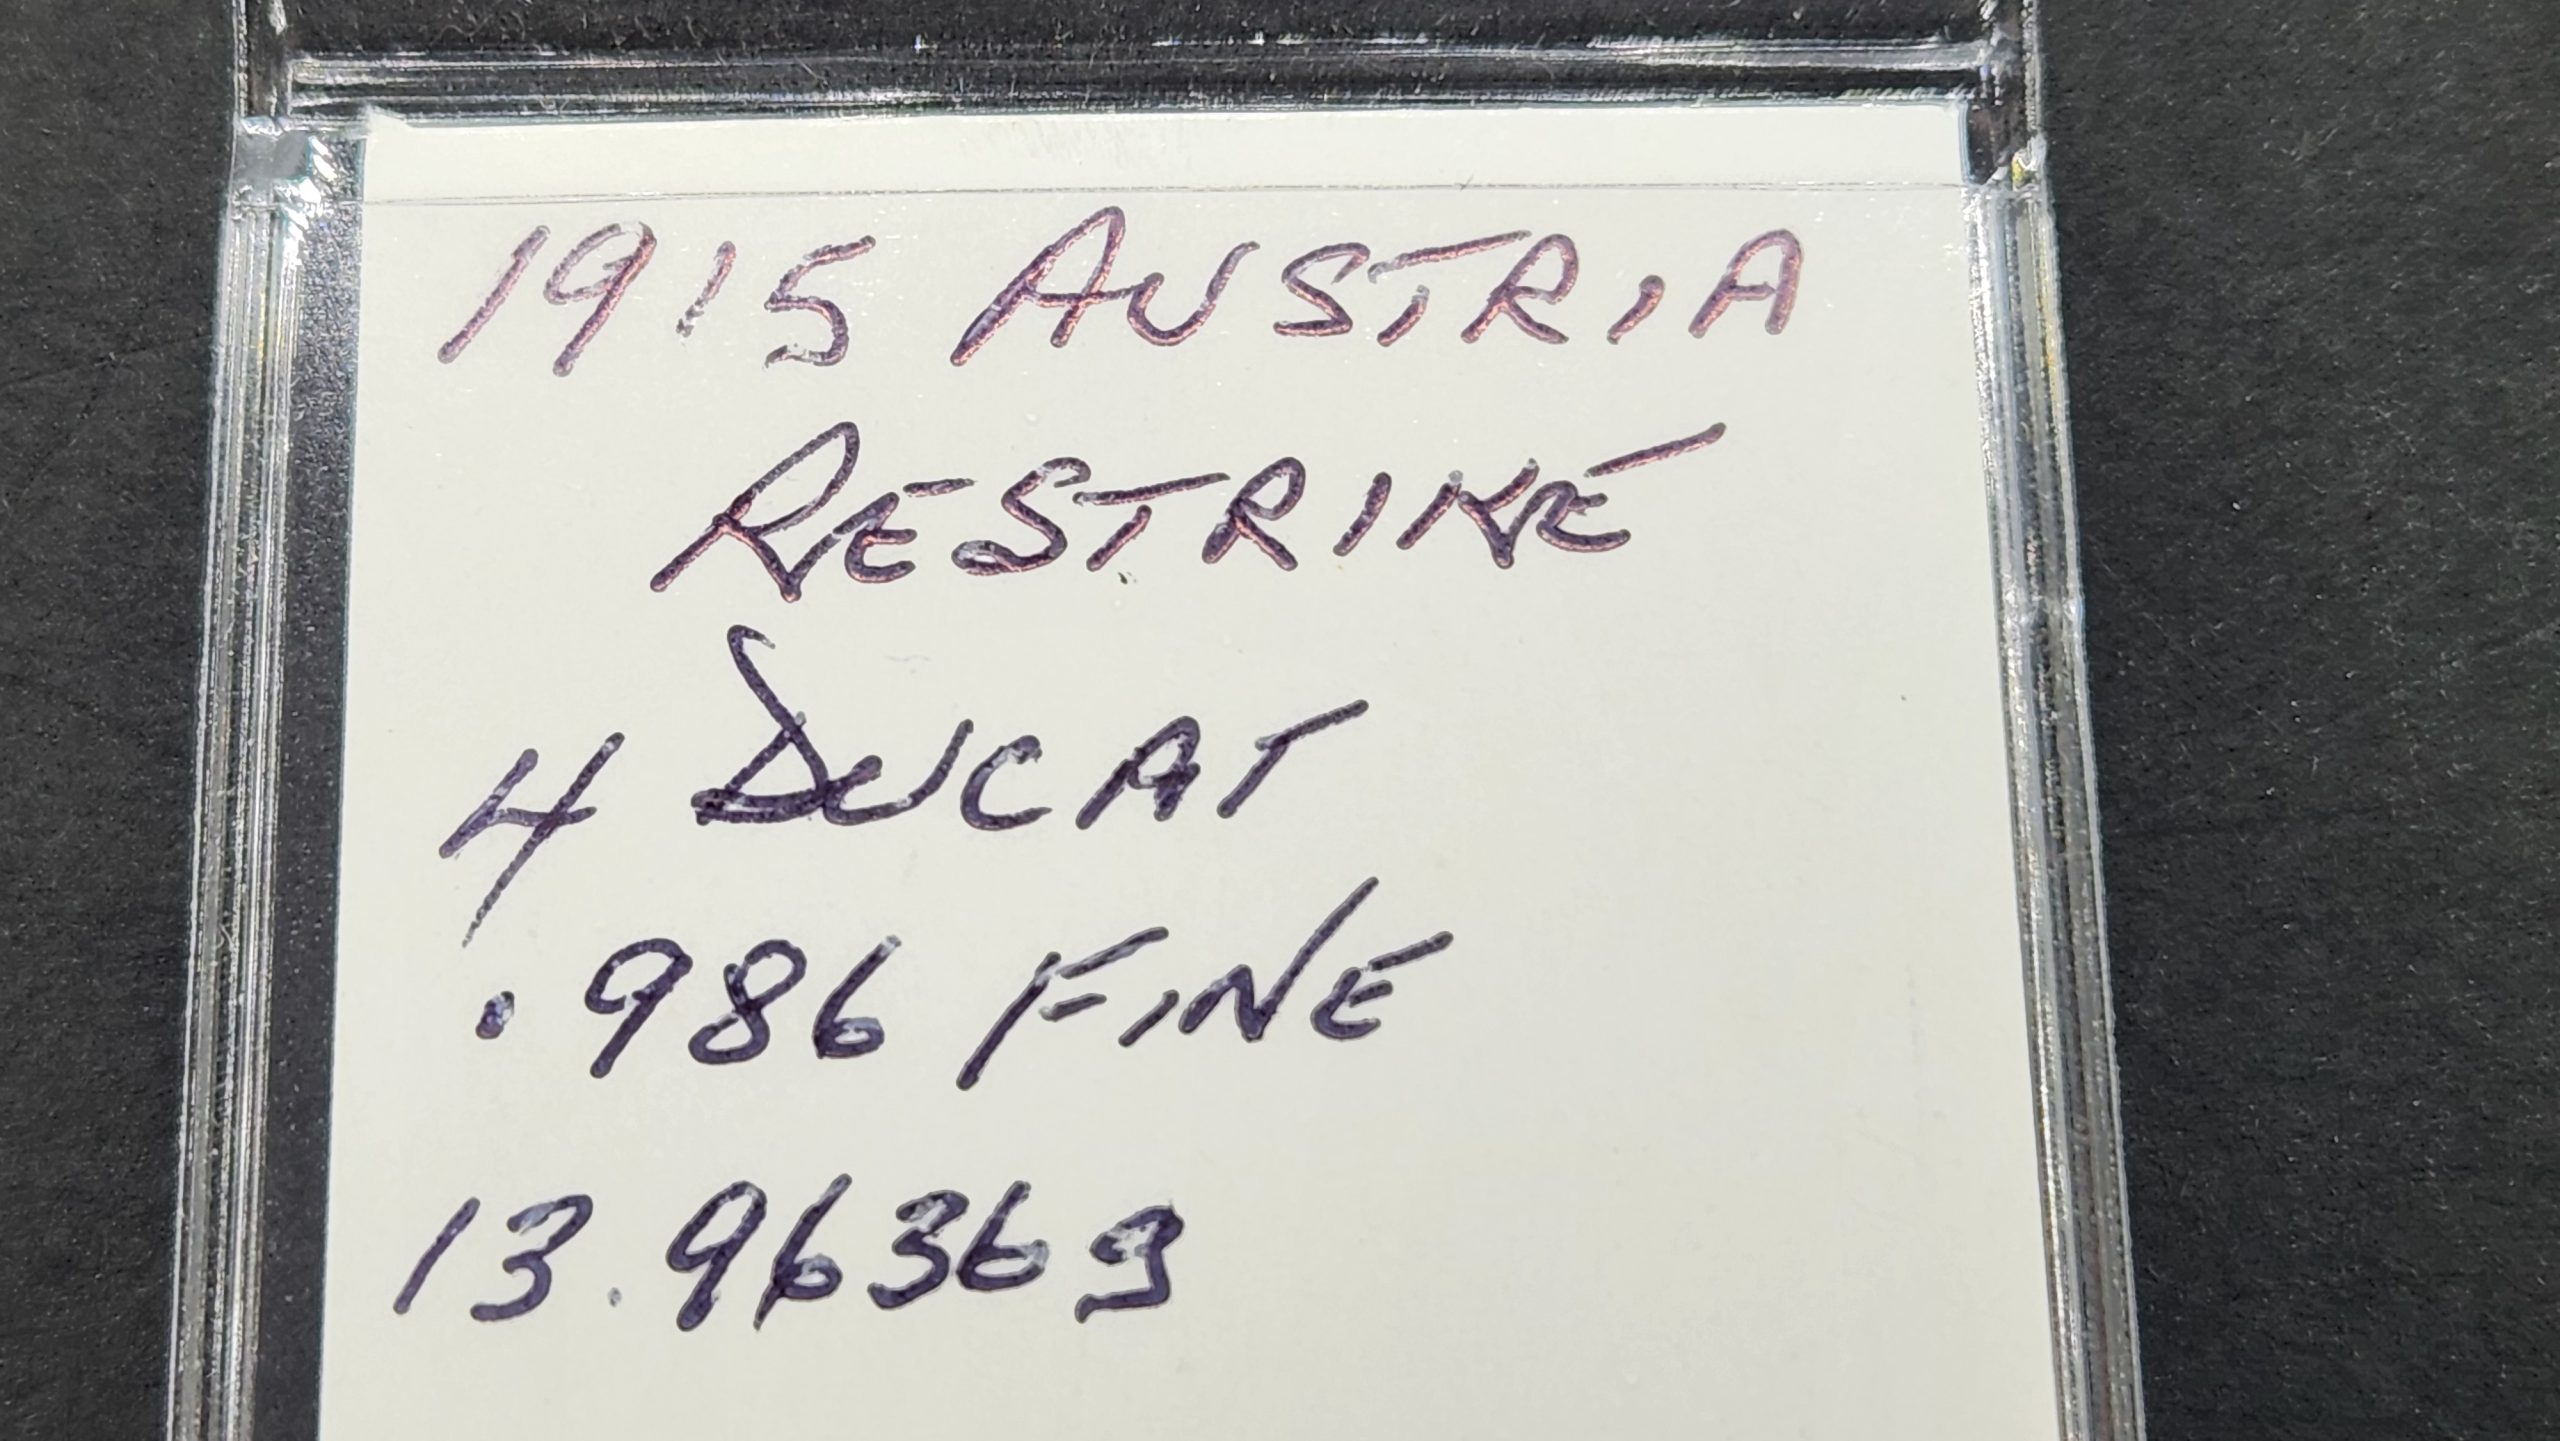 1915 AUSTRIA
RESTRIKE
4 DUCAT
.986 FINE
13.9636g